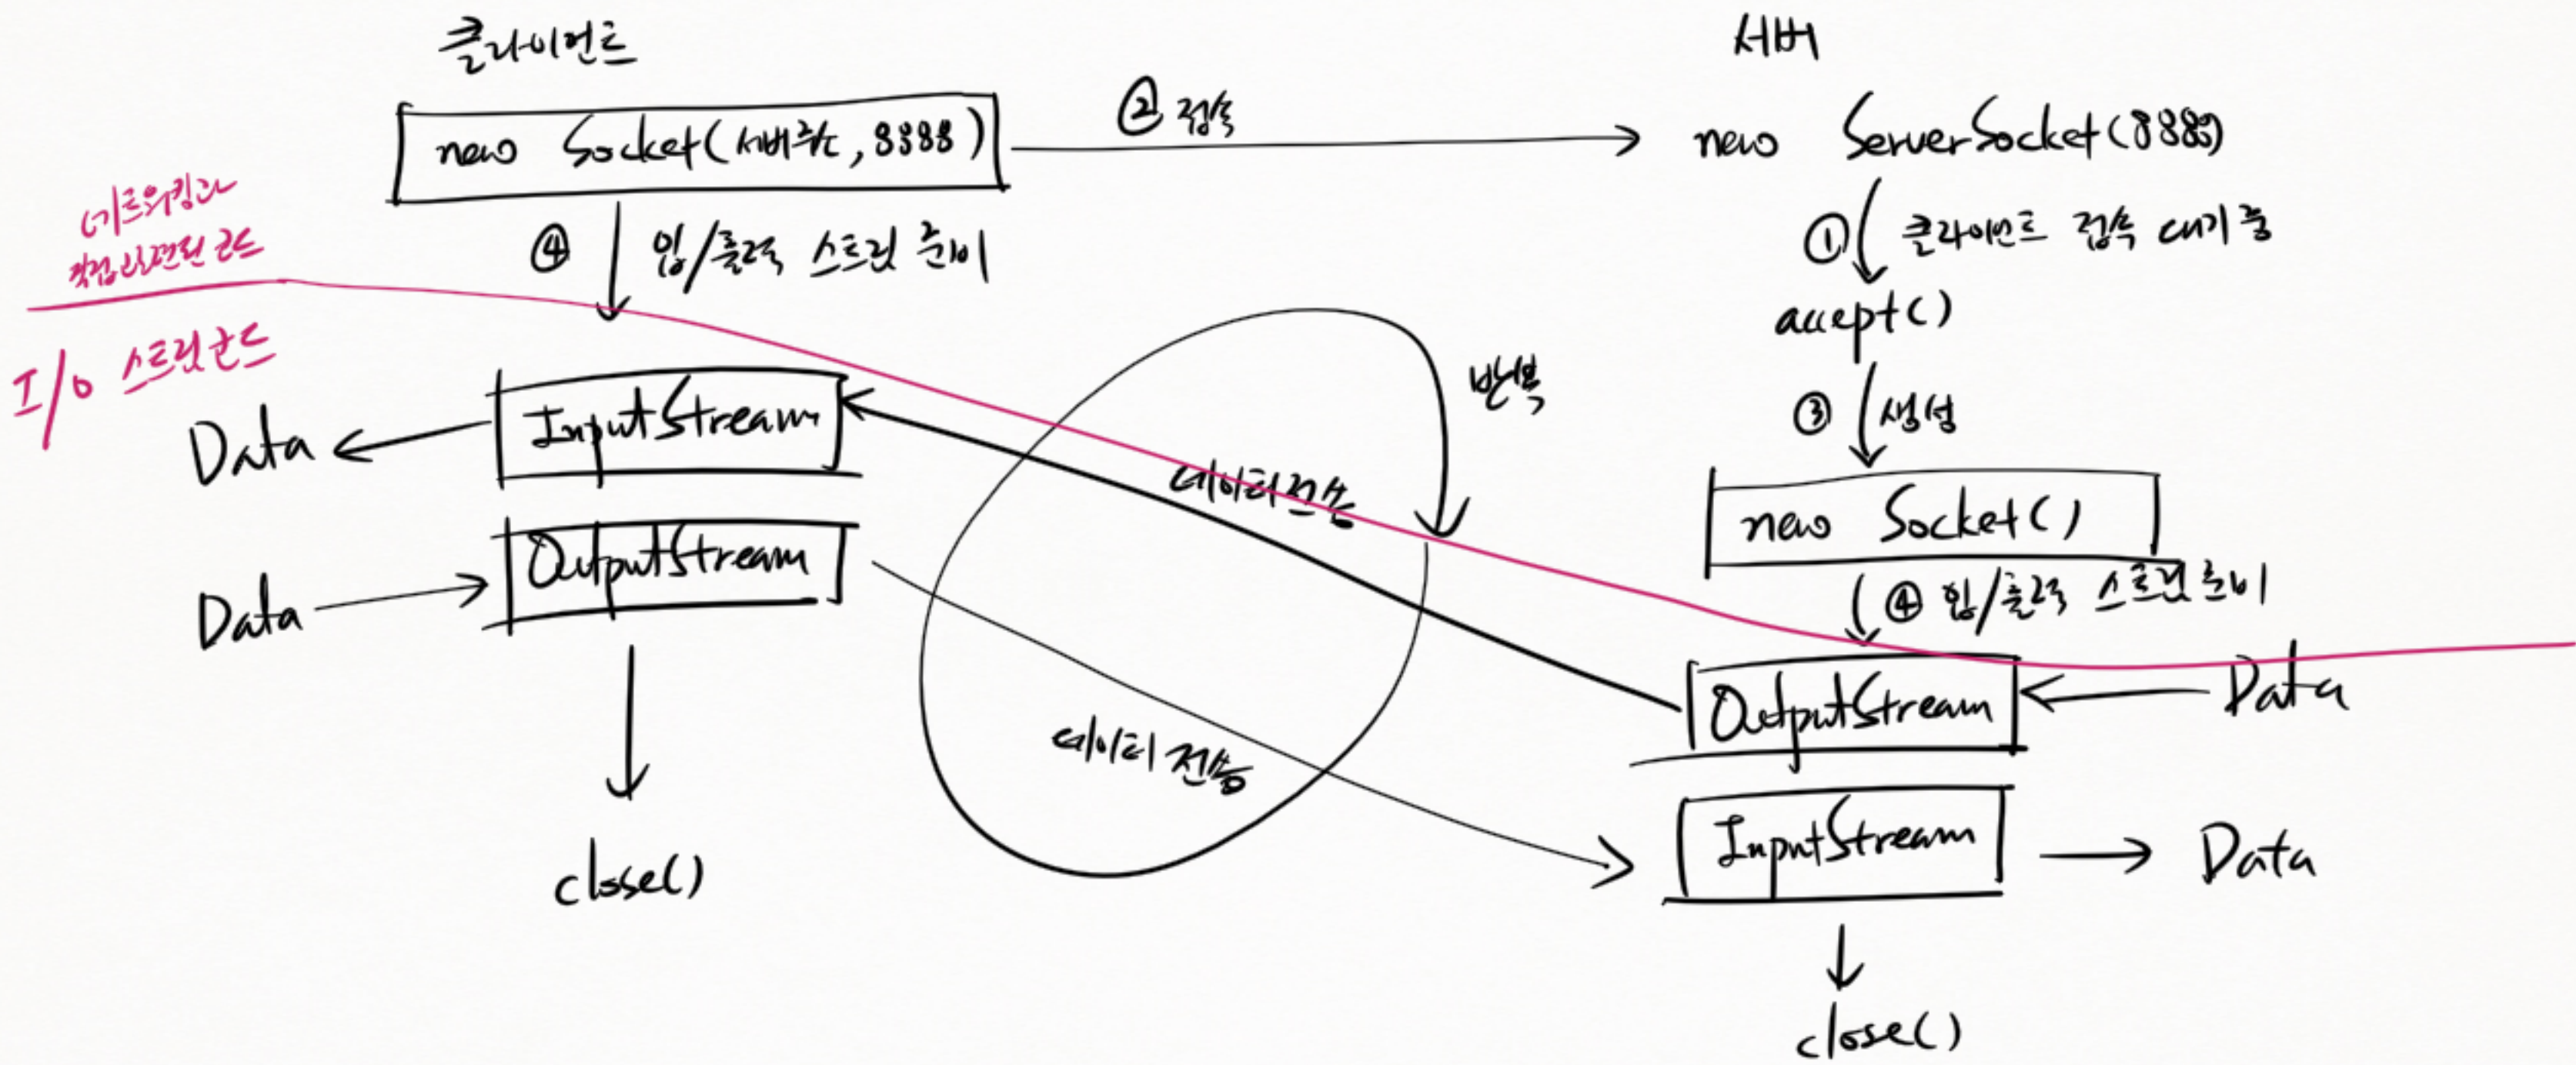 클라이언트
서버
new Socket(서버주소, 8888)
② 접속
new ServerSocket(8888)
네트워킹과
직접 관련된 코드
④ 입/출력 스트림 준비
① 클라이언트 접속 대기 중
accept()
I/O 스트림 코드
반복
③ 생성
Data
InputStream
데이터 전송
new Socket()
Data
OutputStream
④ 입/출력 스트림 준비
OutputStream
Data
데이터 전송
InputStream
Data
close()
close()